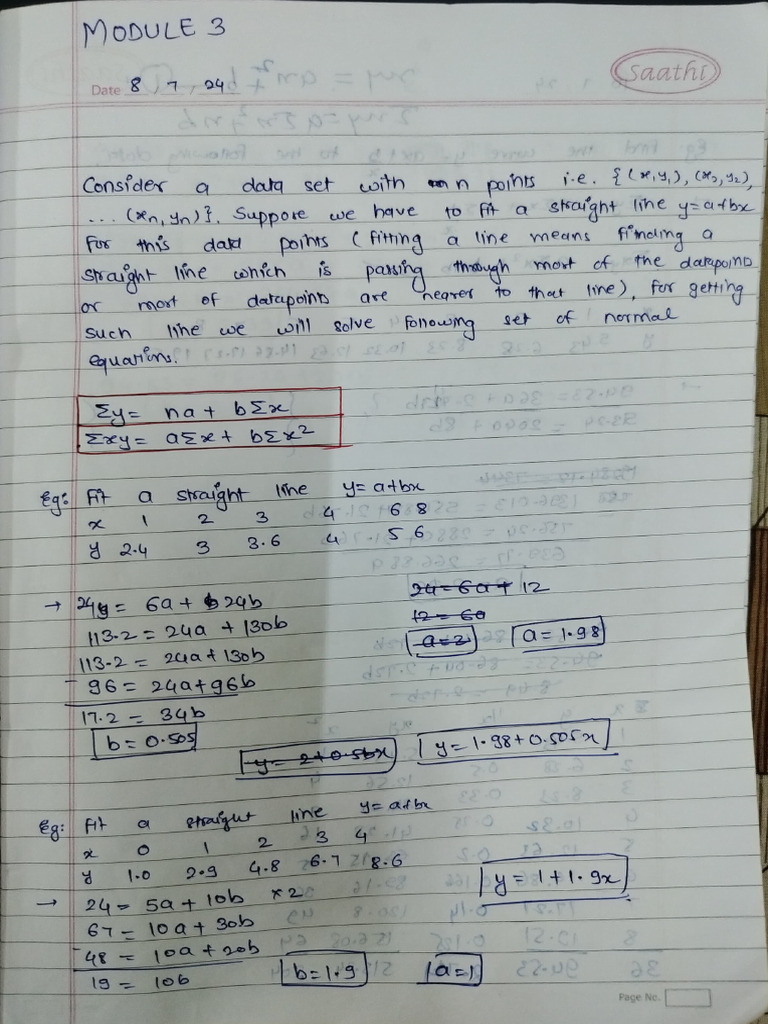 MODULE 3
Saathi
Date 8, 7, 24
Consider a data set with n points i.e. {(x,y₁), (x₂,y₂),
... (xn, yn)}. Suppose we have to fit a straight line y=a+bx
for this data points (fitting a line means finding a
straight line which is passing through most of the datapoints
or most of datapoints are nearer to that line), for getting
such line we will solve following set of normal
equations.
Σy = na + bΣx
Σxy = aΣx + bΣx²
Eg: Fit a straight line y=a+bx
x 1 2 3 4 6 8
y 2.4 3 3.6 4 5 6
→ 24 = 6a + 24b
24 = 6a + 12
113.2 = 24a + 130b
12 = 6a
113.2 = 24a + 130b
a=2 a=1.98
- 96 = 24a+96b
17.2 = 34b
b = 0.505
y = 2+0.5bx y = 1.98+0.505x
Eg: Fit a straight line y=a+bx
x 0 1 2 3 4
y 1.0 2.9 4.8 6.7 8.6
y = 1+1.9x
→ 24 = 5a + 10b ×2
67 = 10a + 30b
- 48 = 10a + 20b
19 = 10b b=1.9 a=1
Page No.